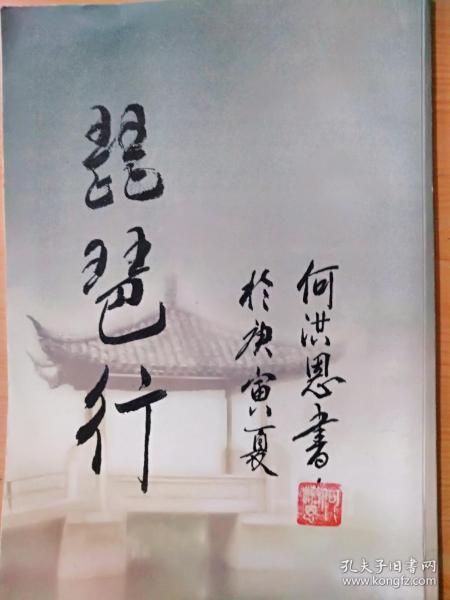 琵琶行
何洪恩书
於庚寅夏
何洪恩
孔夫子旧书网
www.kongfz.com